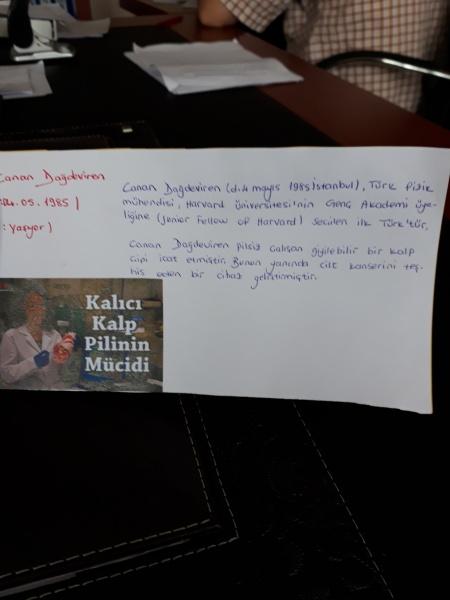 Canan Dağdeviren
04.05.1985 |
: Yaşıyor)
Canan Dağdeviren (d.4 mayıs 1985 İstanbul), Türk Fizik
mühendisi, Harvard Üniversitesi'nin Genç Akademi üye-
liğine (Junior Fellow of Harvard) seçilen ilk Türk'tür.
Canan Dağdeviren pilsiz çalışan giyilebilir bir kalp
çipi icat etmiştir. Bunun yanında cilt kanserini teş-
his eden bir cihaz geliştirmiştir.
Kalıcı
Kalp
Pilinin
Mücidi